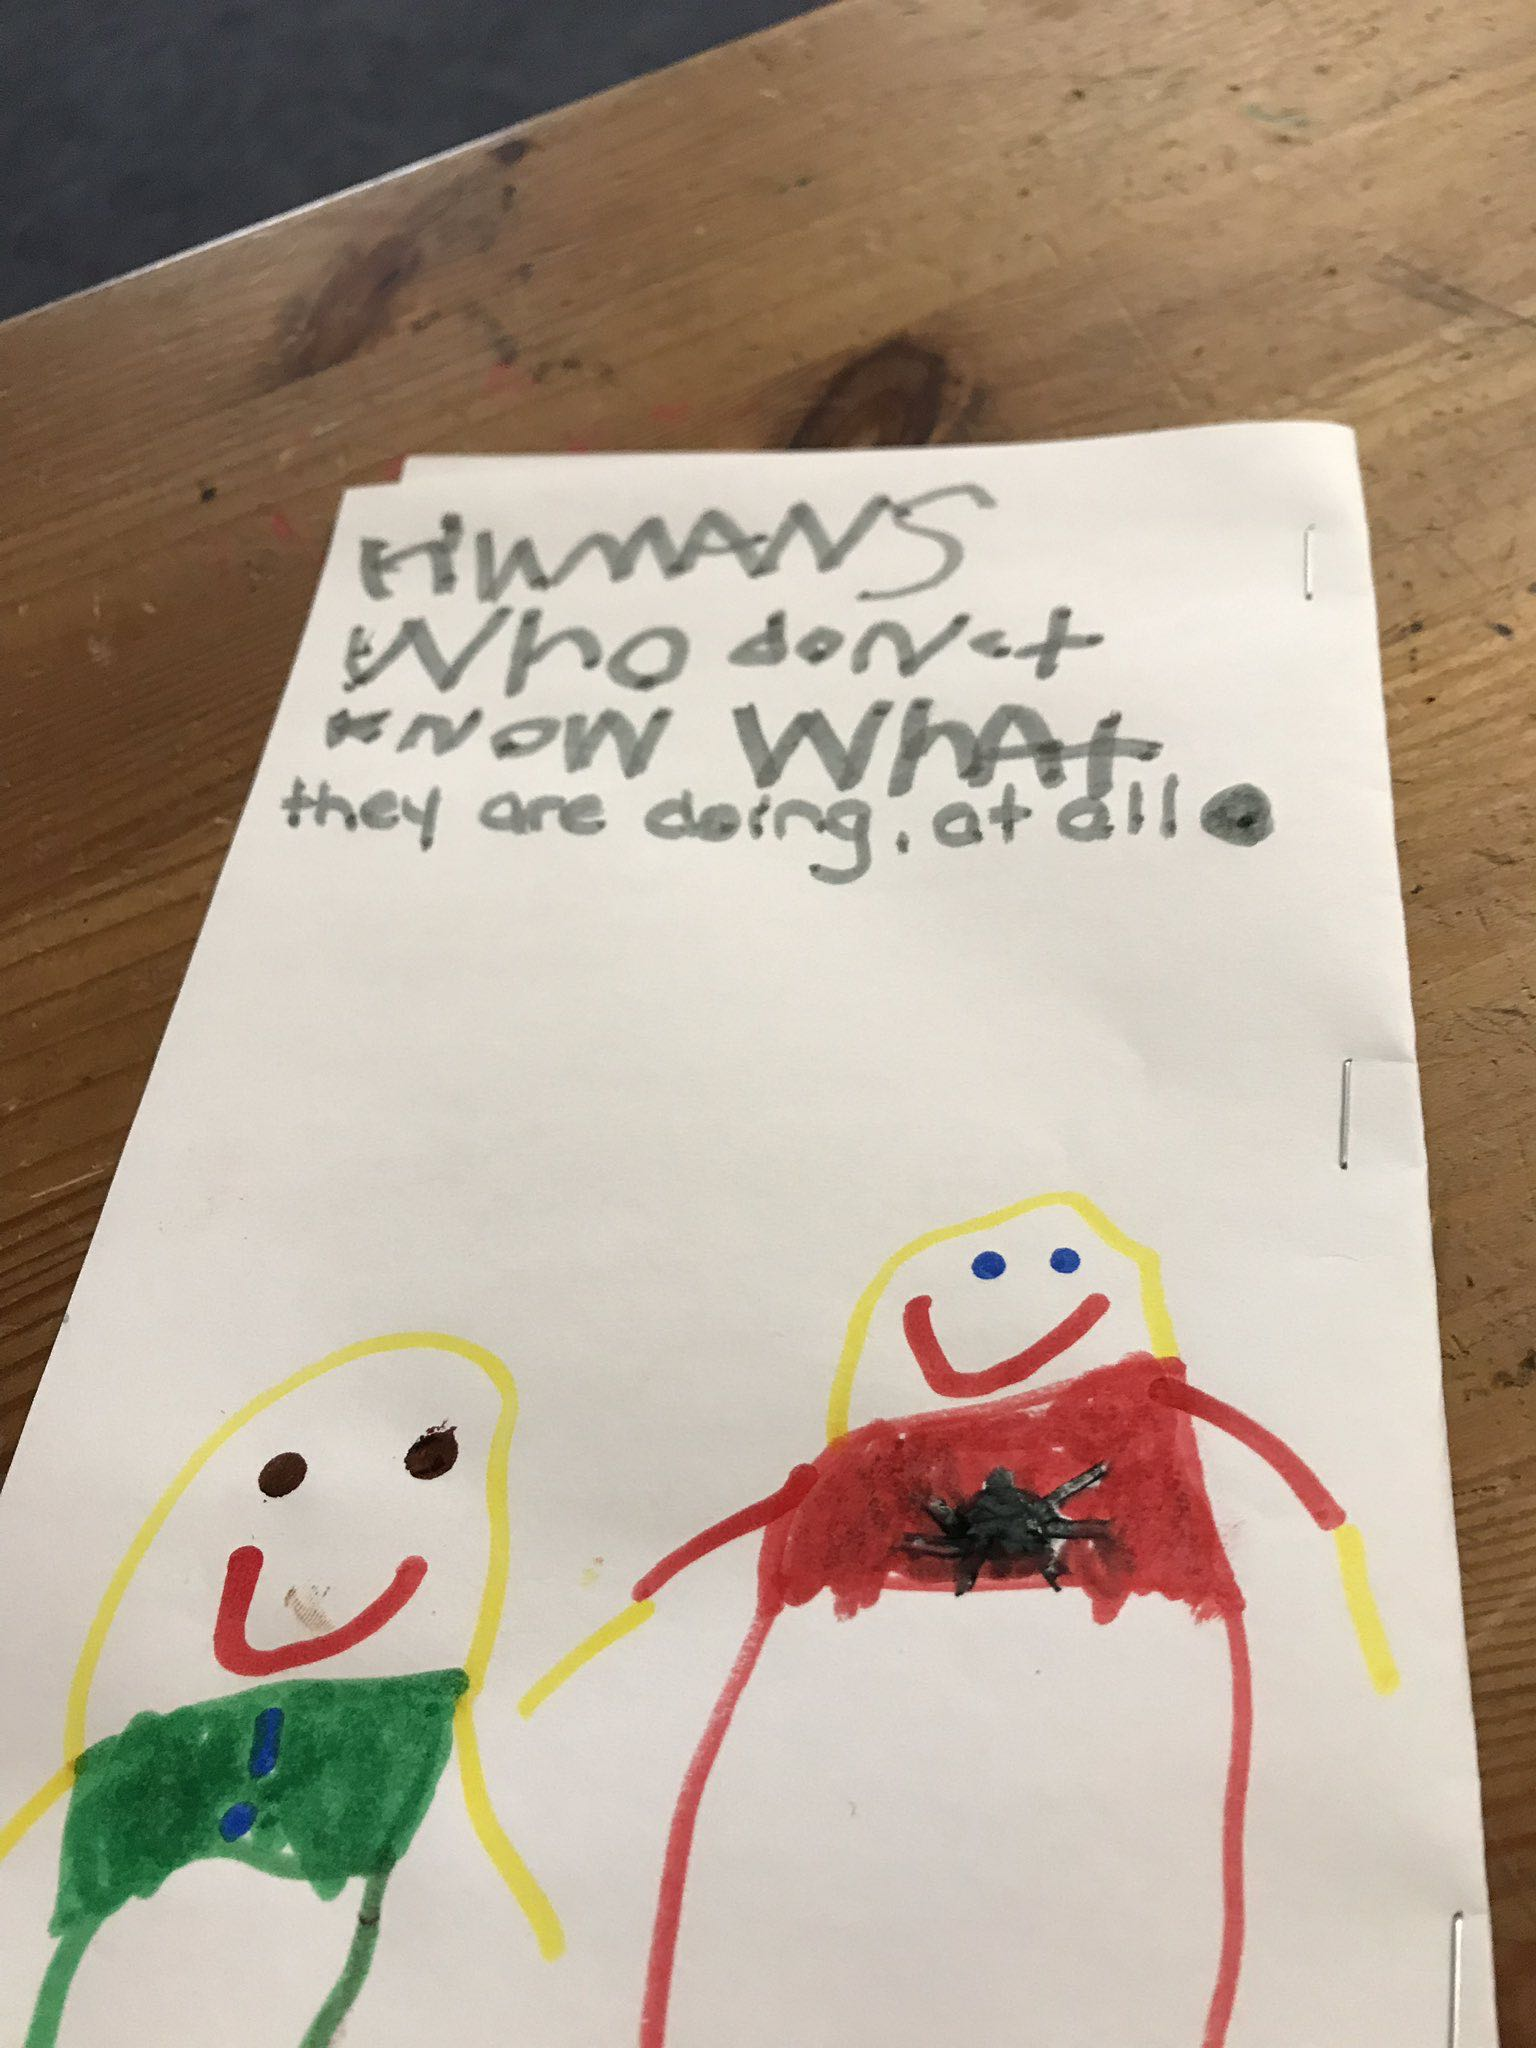 HUMANS
Who don't
know WhAt
they are doing. at all.